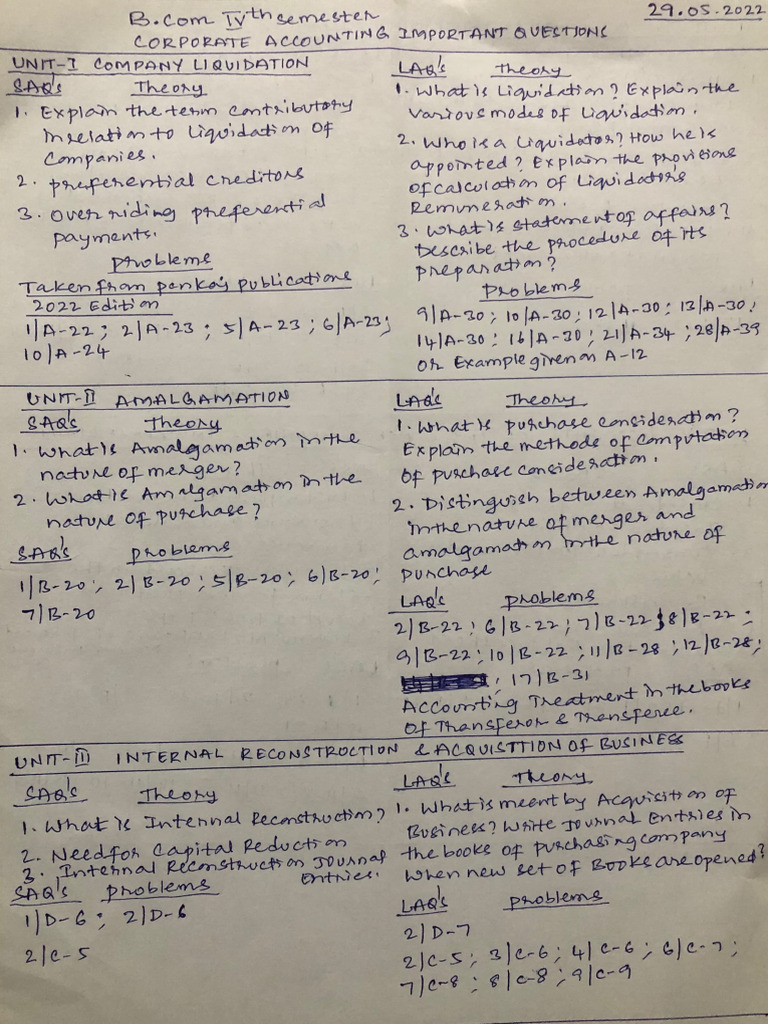 B.com IVth semester
29.05.2022
CORPORATE ACCOUNTING IMPORTANT QUESTIONS
UNIT-I COMPANY LIQUIDATION
SAQ's Theory
1. Explain the term contributory
in relation to Liquidation of
Companies.
2. preferential creditors
3. Over riding preferential
payments.
problems
Taken from pankaj publications
2022 Edition
1|A-22; 2|A-23; 5|A-23; 6|A-23;
10|A-24
LAQ's Theory
1. What is Liquidation? Explain the
various modes of Liquidation.
2. Who is a Liquidator? How he is
appointed? Explain the provisions
of calculation of Liquidator's
Remuneration.
3. What is statement of affairs?
Describe the procedure of its
preparation?
problems
9|A-30; 10|A-30; 12|A-30; 13|A-30;
14|A-30; 16|A-30; 21|A-34; 28|A-39
or Example given on A-12
UNIT-II AMALGAMATION
SAQ's Theory
1. What is Amalgamation in the
nature of merger?
2. What is Amalgamation in the
nature of purchase?
SAQ's problems
1|B-20; 2|B-20; 5|B-20; 6|B-20;
7|B-20
LAQ's Theory
1. What is purchase consideration?
Explain the methods of computation
of purchase consideration.
2. Distinguish between Amalgamation
in the nature of merger and
amalgamation in the nature of
purchase
LAQ's problems
2|B-22; 6|B-22; 7|B-22; 8|B-22;
9|B-22; 10|B-22; 11|B-28; 12|B-28;
; 17|B-31
Accounting Treatment in the books
of Transferor & Transferee.
UNIT-III INTERNAL RECONSTROCTION & ACQUISTTION OF BUSINESS
SAQ's Theory
1. What is Internal Reconstruction?
2. Need for Capital Reduction
3. Internal Reconstruction Journal
Entries.
SAQ's problems
1|D-6; 2|D-6
2|C-5
LAQ's Theory
1. What is meent by Acquisition of
Business? Write Journal Entries in
the books of purchasing company
when new set of Books are opened?
LAQ's problems
2|D-7
2|C-5; 3|C-6; 4|C-6; 6|C-7;
7|C-8; 8|C-8; 9|C-9